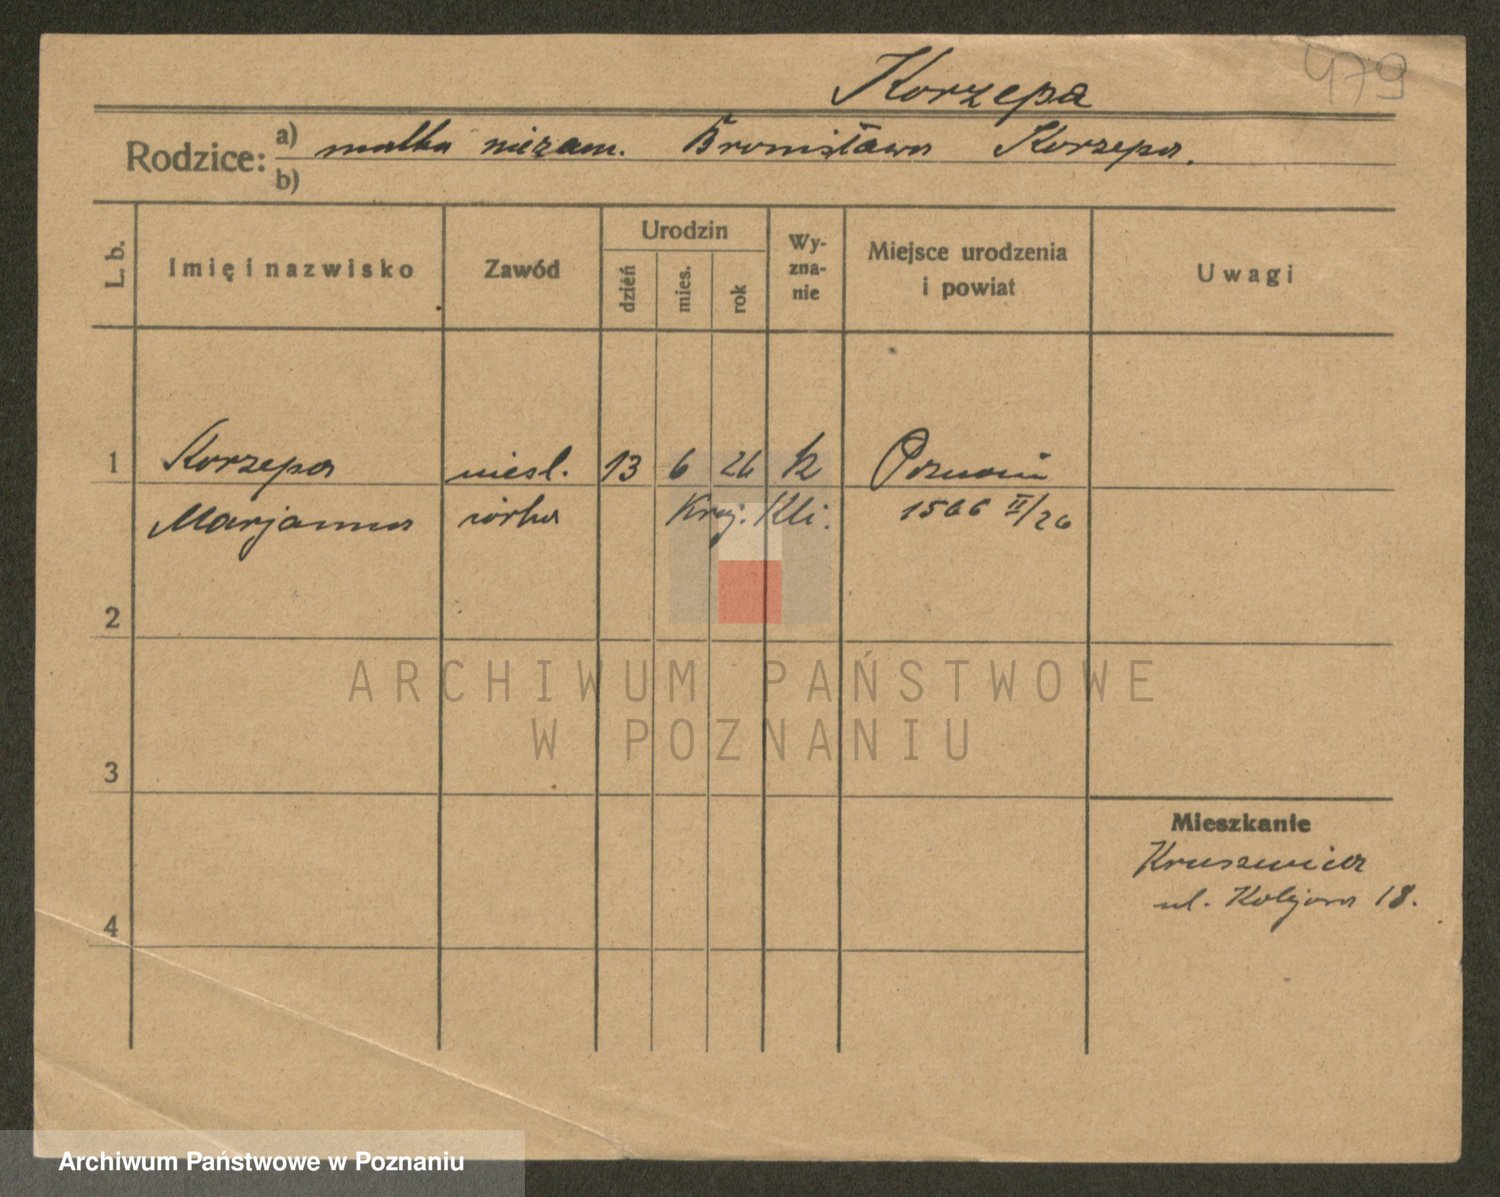 479
Korzepa
Rodzice: a) matka niezam. Bronisława Korzepa.
b)
L. b.
Imię i nazwisko
Zawód
Urodzin
dzień
mies.
rok
Wy-
zna-
nie
Miejsce urodzenia
i powiat
Uwagi
1 Korzepa niesl. 13 6 26 k Poznań
Marjanna córka Kraj. Kli. 1566 II/26
2
3
4
Mieszkanie
Kruszewica
ul. Kolejowa 18.
ARCHIWUM PAŃSTWOWE
W POZNANIU
Archiwum Państwowe w Poznaniu